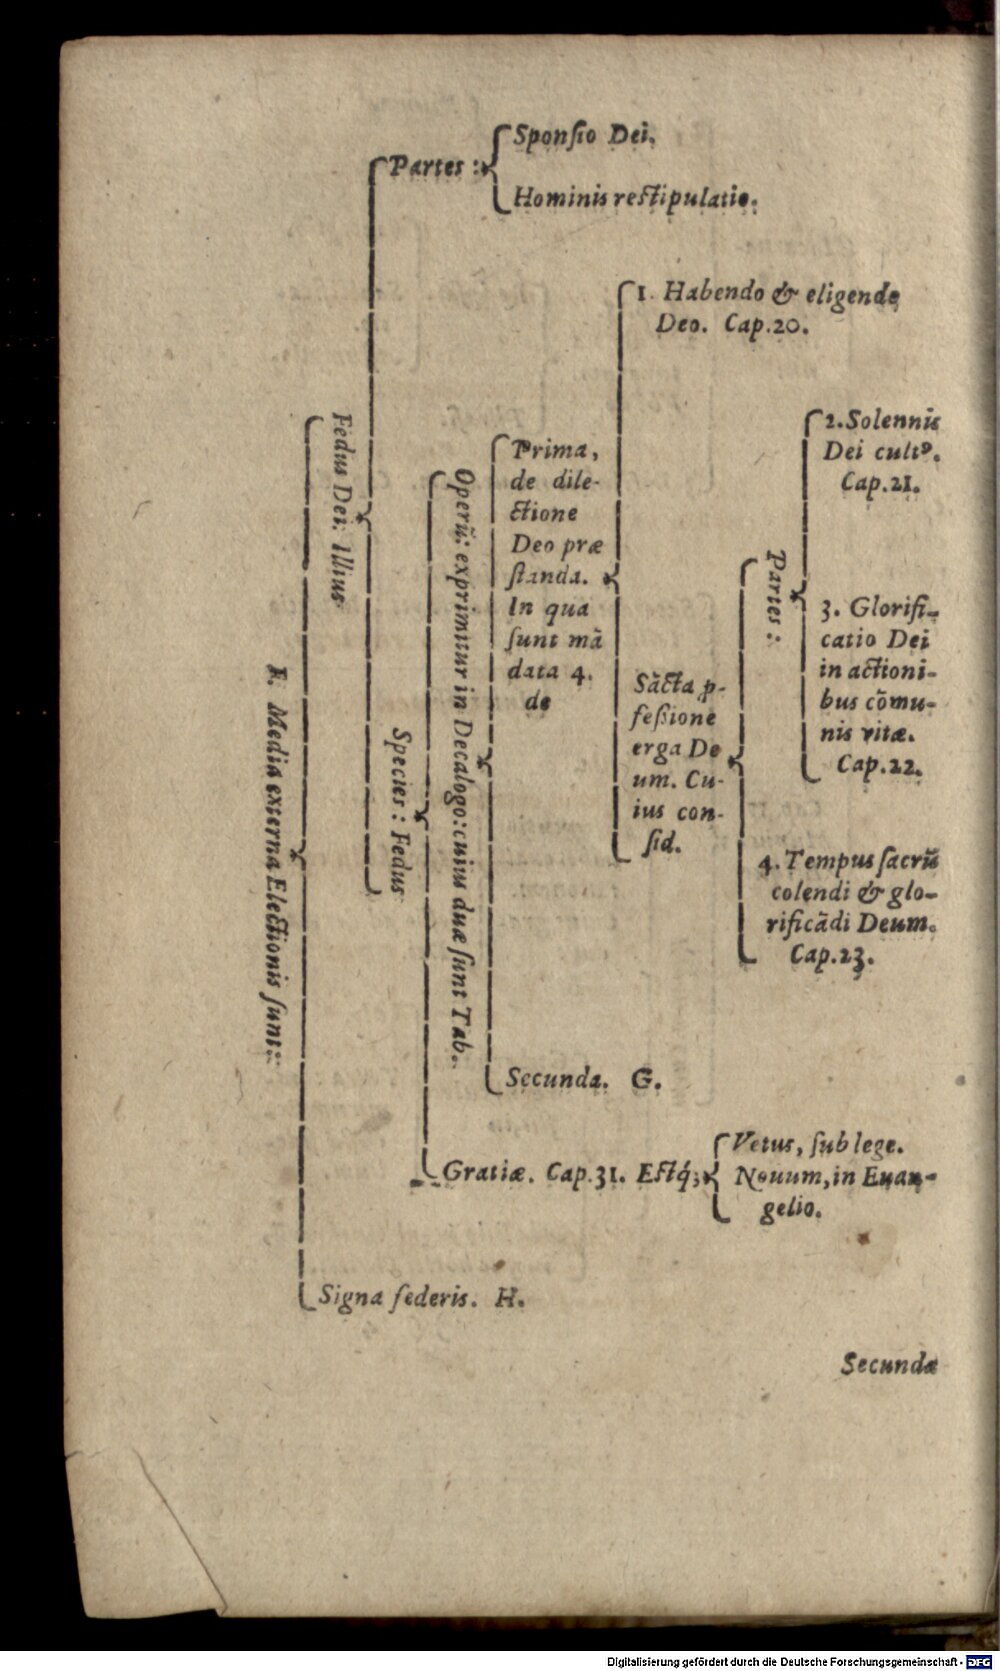 F. Media externa Electionis ſunt:
Fedus Dei. Illius
Partes:
Sponſio Dei.
Hominis reſtipulatio.
Species: Fedus
Operũ: exprimitur in Decalogo: cuius duæ ſunt Tab.
Prima,
de dile-
ctione
Deo præ
ſtanda.
In qua
ſunt mã
data 4.
de
1. Habendo & eligendo
Deo. Cap.20.
Sãcta ꝓ-
feßione
erga De
um. Cu-
ius con-
ſid.
Partes:
2. Solennis
Dei cultꝰ.
Cap.21.
3. Glorifi-
catio Dei
in actioni-
bus cõmu-
nis vitæ.
Cap.22.
4. Tempus ſacrũ
colendi & glo-
rificãdi Deum.
Cap.23.
Secunda. G.
Gratiæ. Cap.31. Eſtq́;
Vetus, ſub lege.
Nouum, in Euan-
gelio.
Signa federis. H.
Secunda
Digitalisierung gefördert durch die Deutsche Forschungsgemeinschaft - DFG